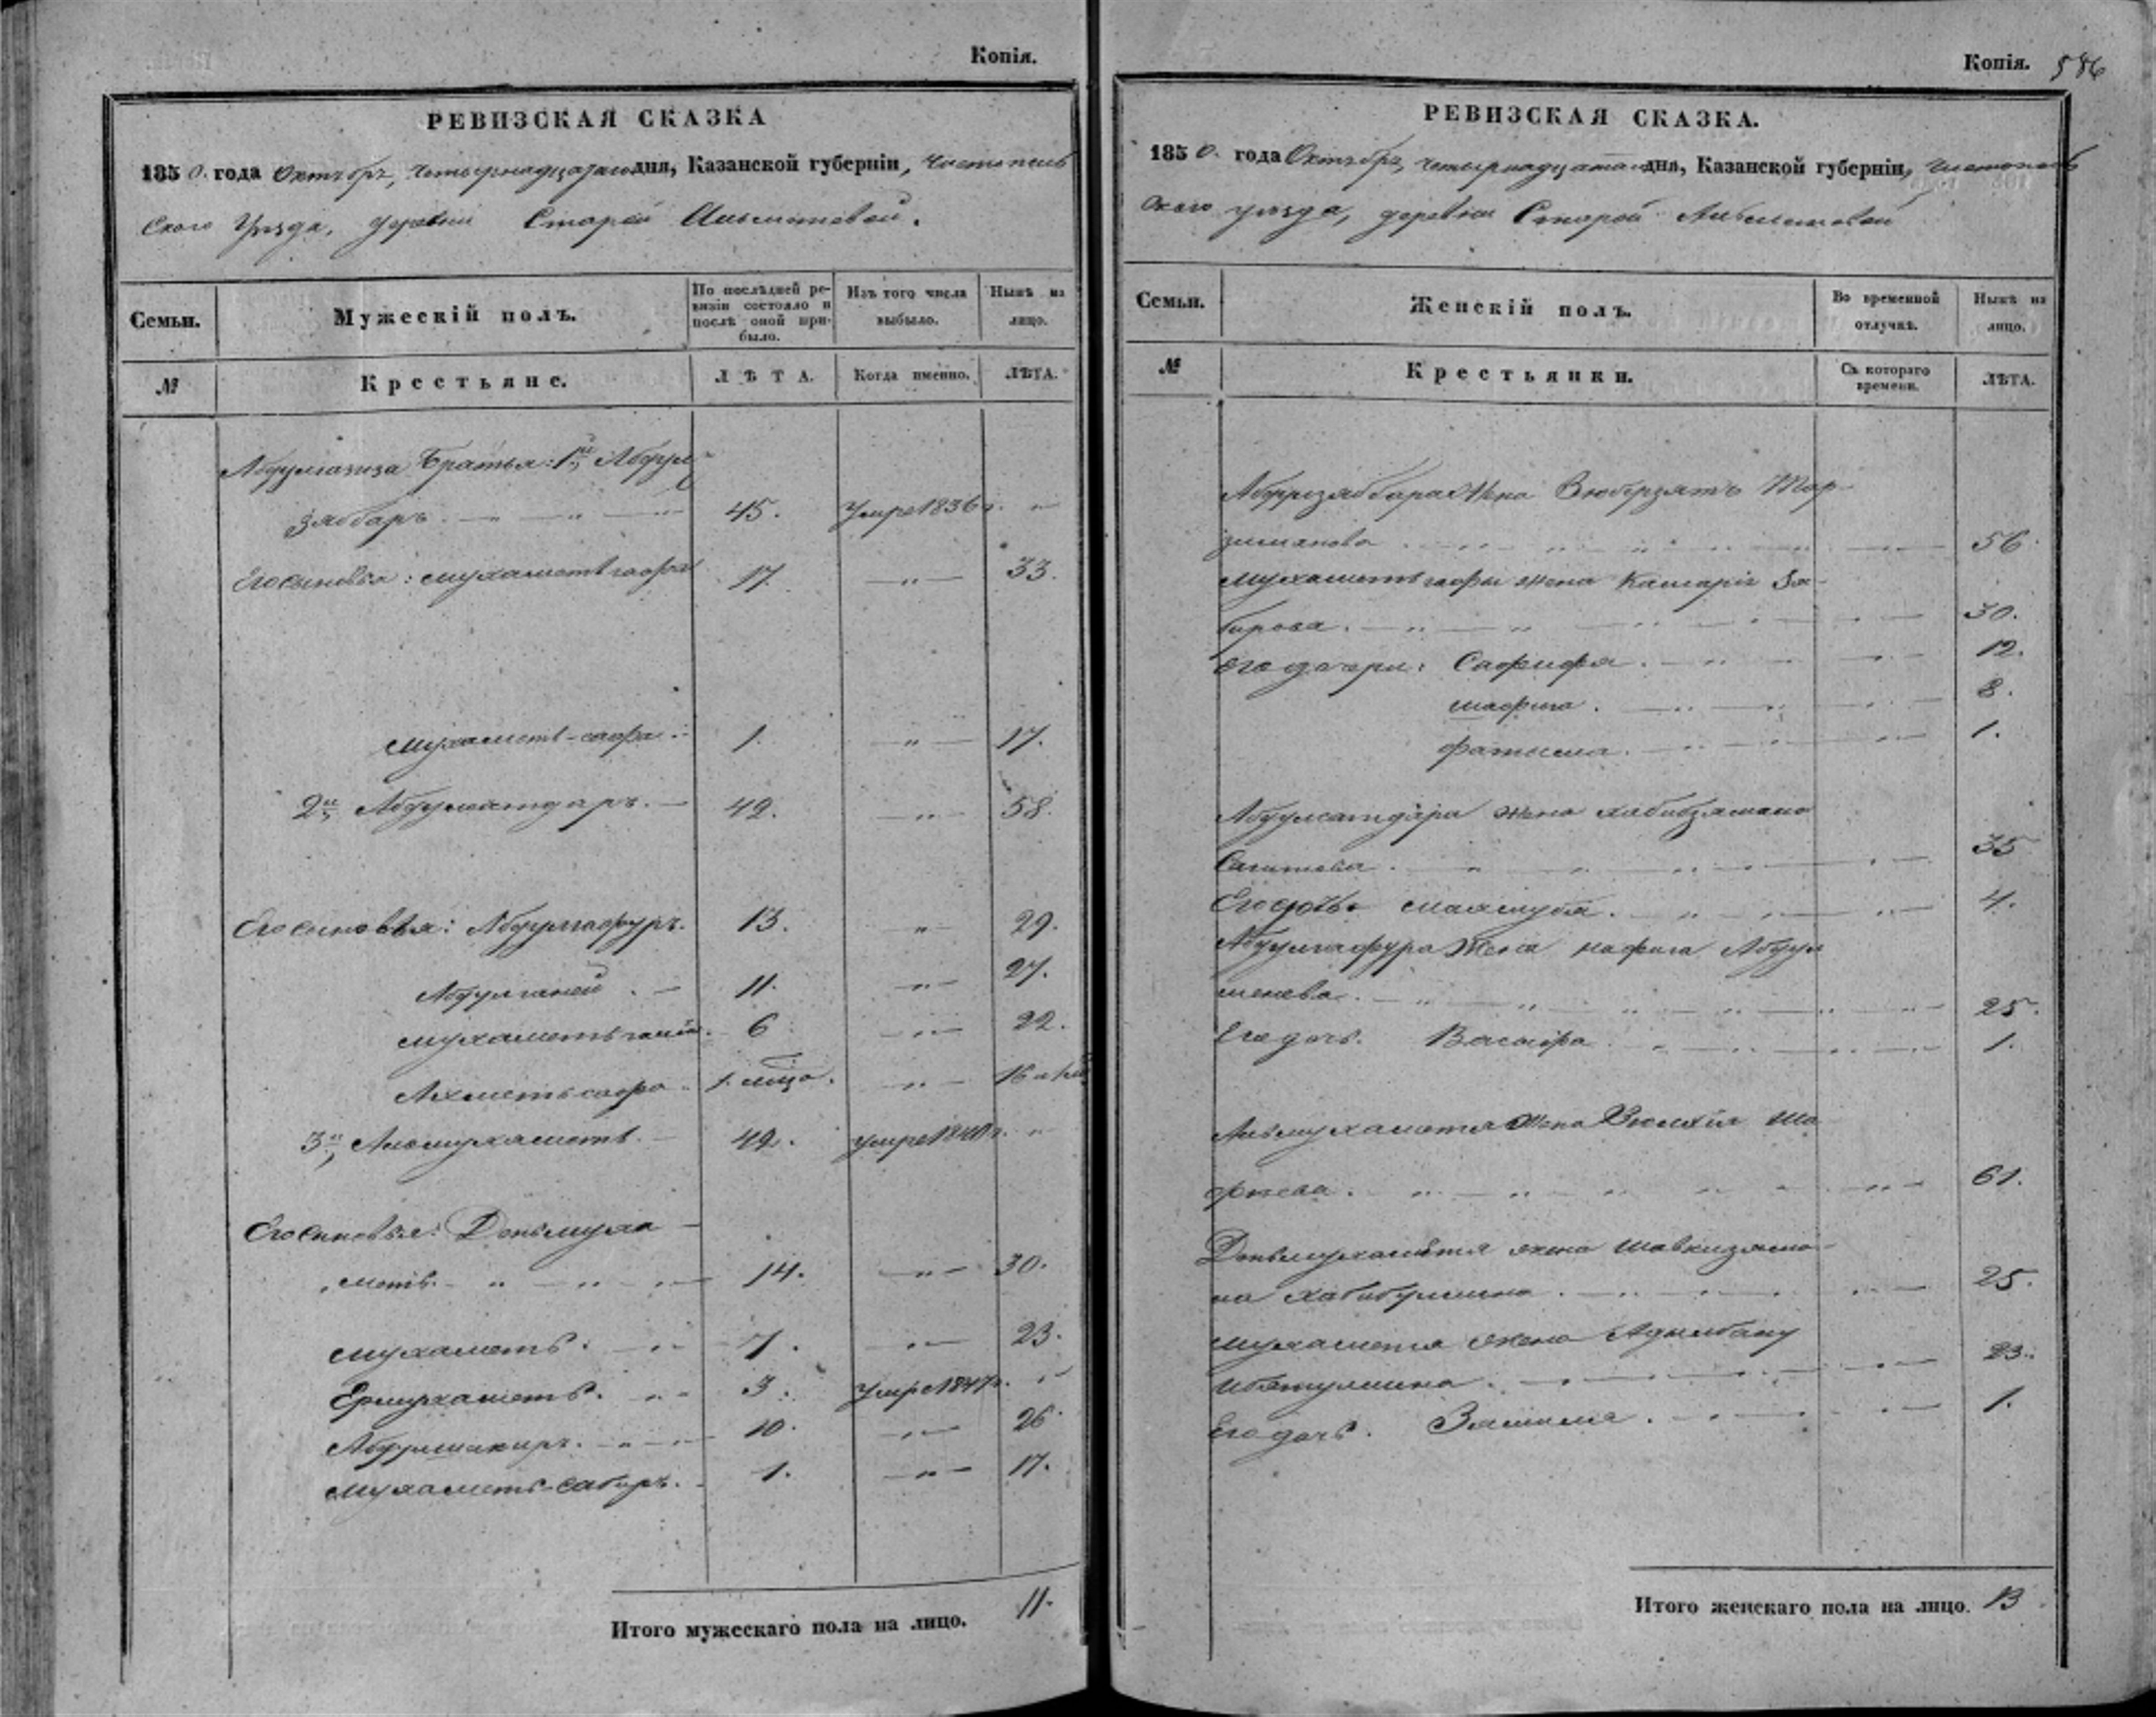 Копія.
РЕВИЗСКАЯ СКАЗКА
1850. года Октября, четырнадцатаго дня, Казанской губерніи, Чистополь
скаго Уезда, деревни Старой Альметевой.
Семьи.
Мужескій полъ.
По послѣдней ре-
визіи состояло и
послѣ оной при-
было.
Изъ того числа
выбыло.
Нынѣ на
лицо.
№
Крестьяне.
ЛѢТА.
Когда именно.
ЛѢТА.
Абдулазиза Братья: 1й Абдул
зяббаръ 45. Умре 1836 г. "
Его сыновья: Мухаметьгафа 17. " 33.
Мухаметь-сафа 1. " 17.
2й Абдулсатдаръ. 42. " 58.
Его сыновья: Абдулгафуръ. 13. " 29.
Абдулганей 11. " 27.
Мухаметьгани 6 " 22.
Ахметьсафа 1. " 16
3й Альмухаметь. 42. умре 1840 г. "
Его сыновья: Доньмуха
меть. 14. " 30.
Мухаметь. 7. " 23.
Ермухаметь. 3. Умре 1847 г. "
Абдулшакиръ. 10. " 26.
Мухаметь-сабиръ. 1. " 17.
Итого мужескаго пола на лицо. 11.
Копія. 586
РЕВИЗСКАЯ СКАЗКА.
1850. года Октября, четырнадцатаго дня, Казанской губерніи, Чистополь
скаго уезда, деревни Старой Альметевой
Семьи.
Женскій полъ.
Во временной
отлучкѣ.
Нынѣ на
лицо.
№
Крестьянки.
Съ котораго
времени.
ЛѢТА.
Абдулзяббара жена Зюбярзятъ
56.
Мухаметьгафы жена Камаріе За
бирова. 30.
Его дочери: Сафифа. 12.
Мафига. 8.
Фатыма. 1.
Абдулсатдара жена Хабибзямало
Сагитова. 35
Его дочь Маамуба. 4.
Абдулгафура жена Нафига Абдул
менева. 25.
Его дочь. Васифа 1.
Альмухаметя жена Зюлхія Ша
фіева. 61.
Доньмухаметя жена Шавкизяма
ла Хабибулина. 25.
Мухаметя жена Адилбану
Ибятулина. 23.
Его дочь. Залима. 1.
Итого женскаго пола на лицо. 13.